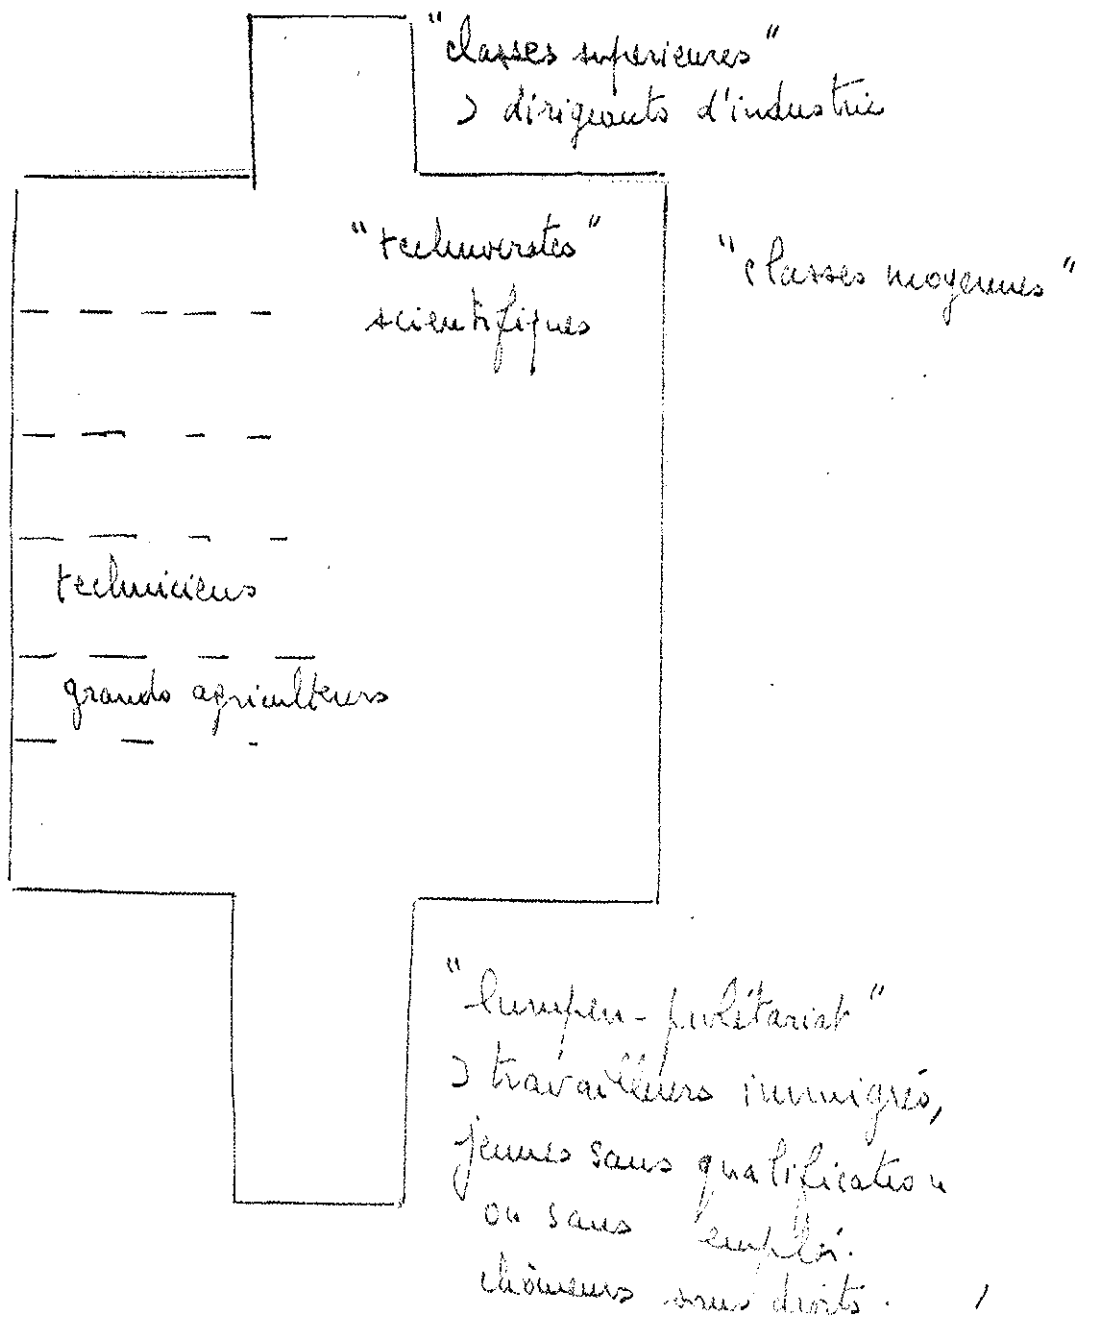 "classes superieures"
⊃ dirigeants d'industrie
"technocrates"
scientifiques
"classes moyennes"
techniciens
grands agriculteurs
"lumpen-prolétariat"
⊃ travailleurs immigrés,
jeunes sans qualification
ou sans emploi.
chômeurs sans droits.